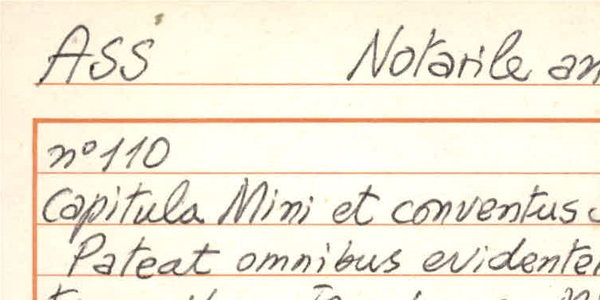 ASS Notarile an
nº 110
Capitula Mini et conventus
Pateat omnibus evidenter